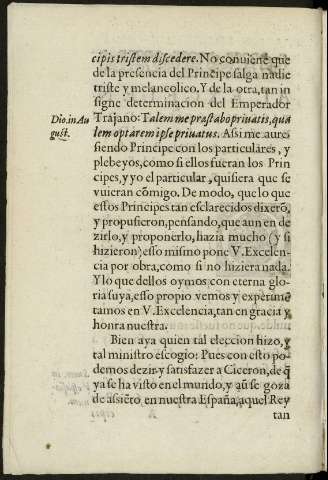 cipis tristem discedere. No conuiene que
de la presencia del Principe salga nadie
triste y melancolico. Y de la otra, tan in
signe determinacion del Emperador
Dio. in Au
gust.
Trajano: Talem me præstabo priuatis, qua
lem optarem ipse priuatus. Assi me aure,
siendo Principe con los particulares, y
plebeyos, como si ellos fueran los Prin
cipes, y yo el particular, quisiera que se
vuieran cõmigo. De modo, que lo que
estos Principes tan esclarecidos dixerõ,
y propusieron, pensando, que aun en de
zirlo, y proponerlo, hazia mucho (y si
hizieron) esso mismo pone V. Excelen-
cia por obra, como si no hiziera nada.
Y lo que dellos oymos con eterna glo-
ria suya, esso propio vemos y experimẽ
tamos en V. Excelencia, tan en gracia y
honra nuestra.
Bien aya quien tal eleccion hizo, y
tal ministro escogio: Pues con esto po-
demos dezir y satisfazer a Ciceron, de q̃
ya se ha visto en el mundo, y aũ se goza
de assiẽto en nuestra España, aquel Rey
tan